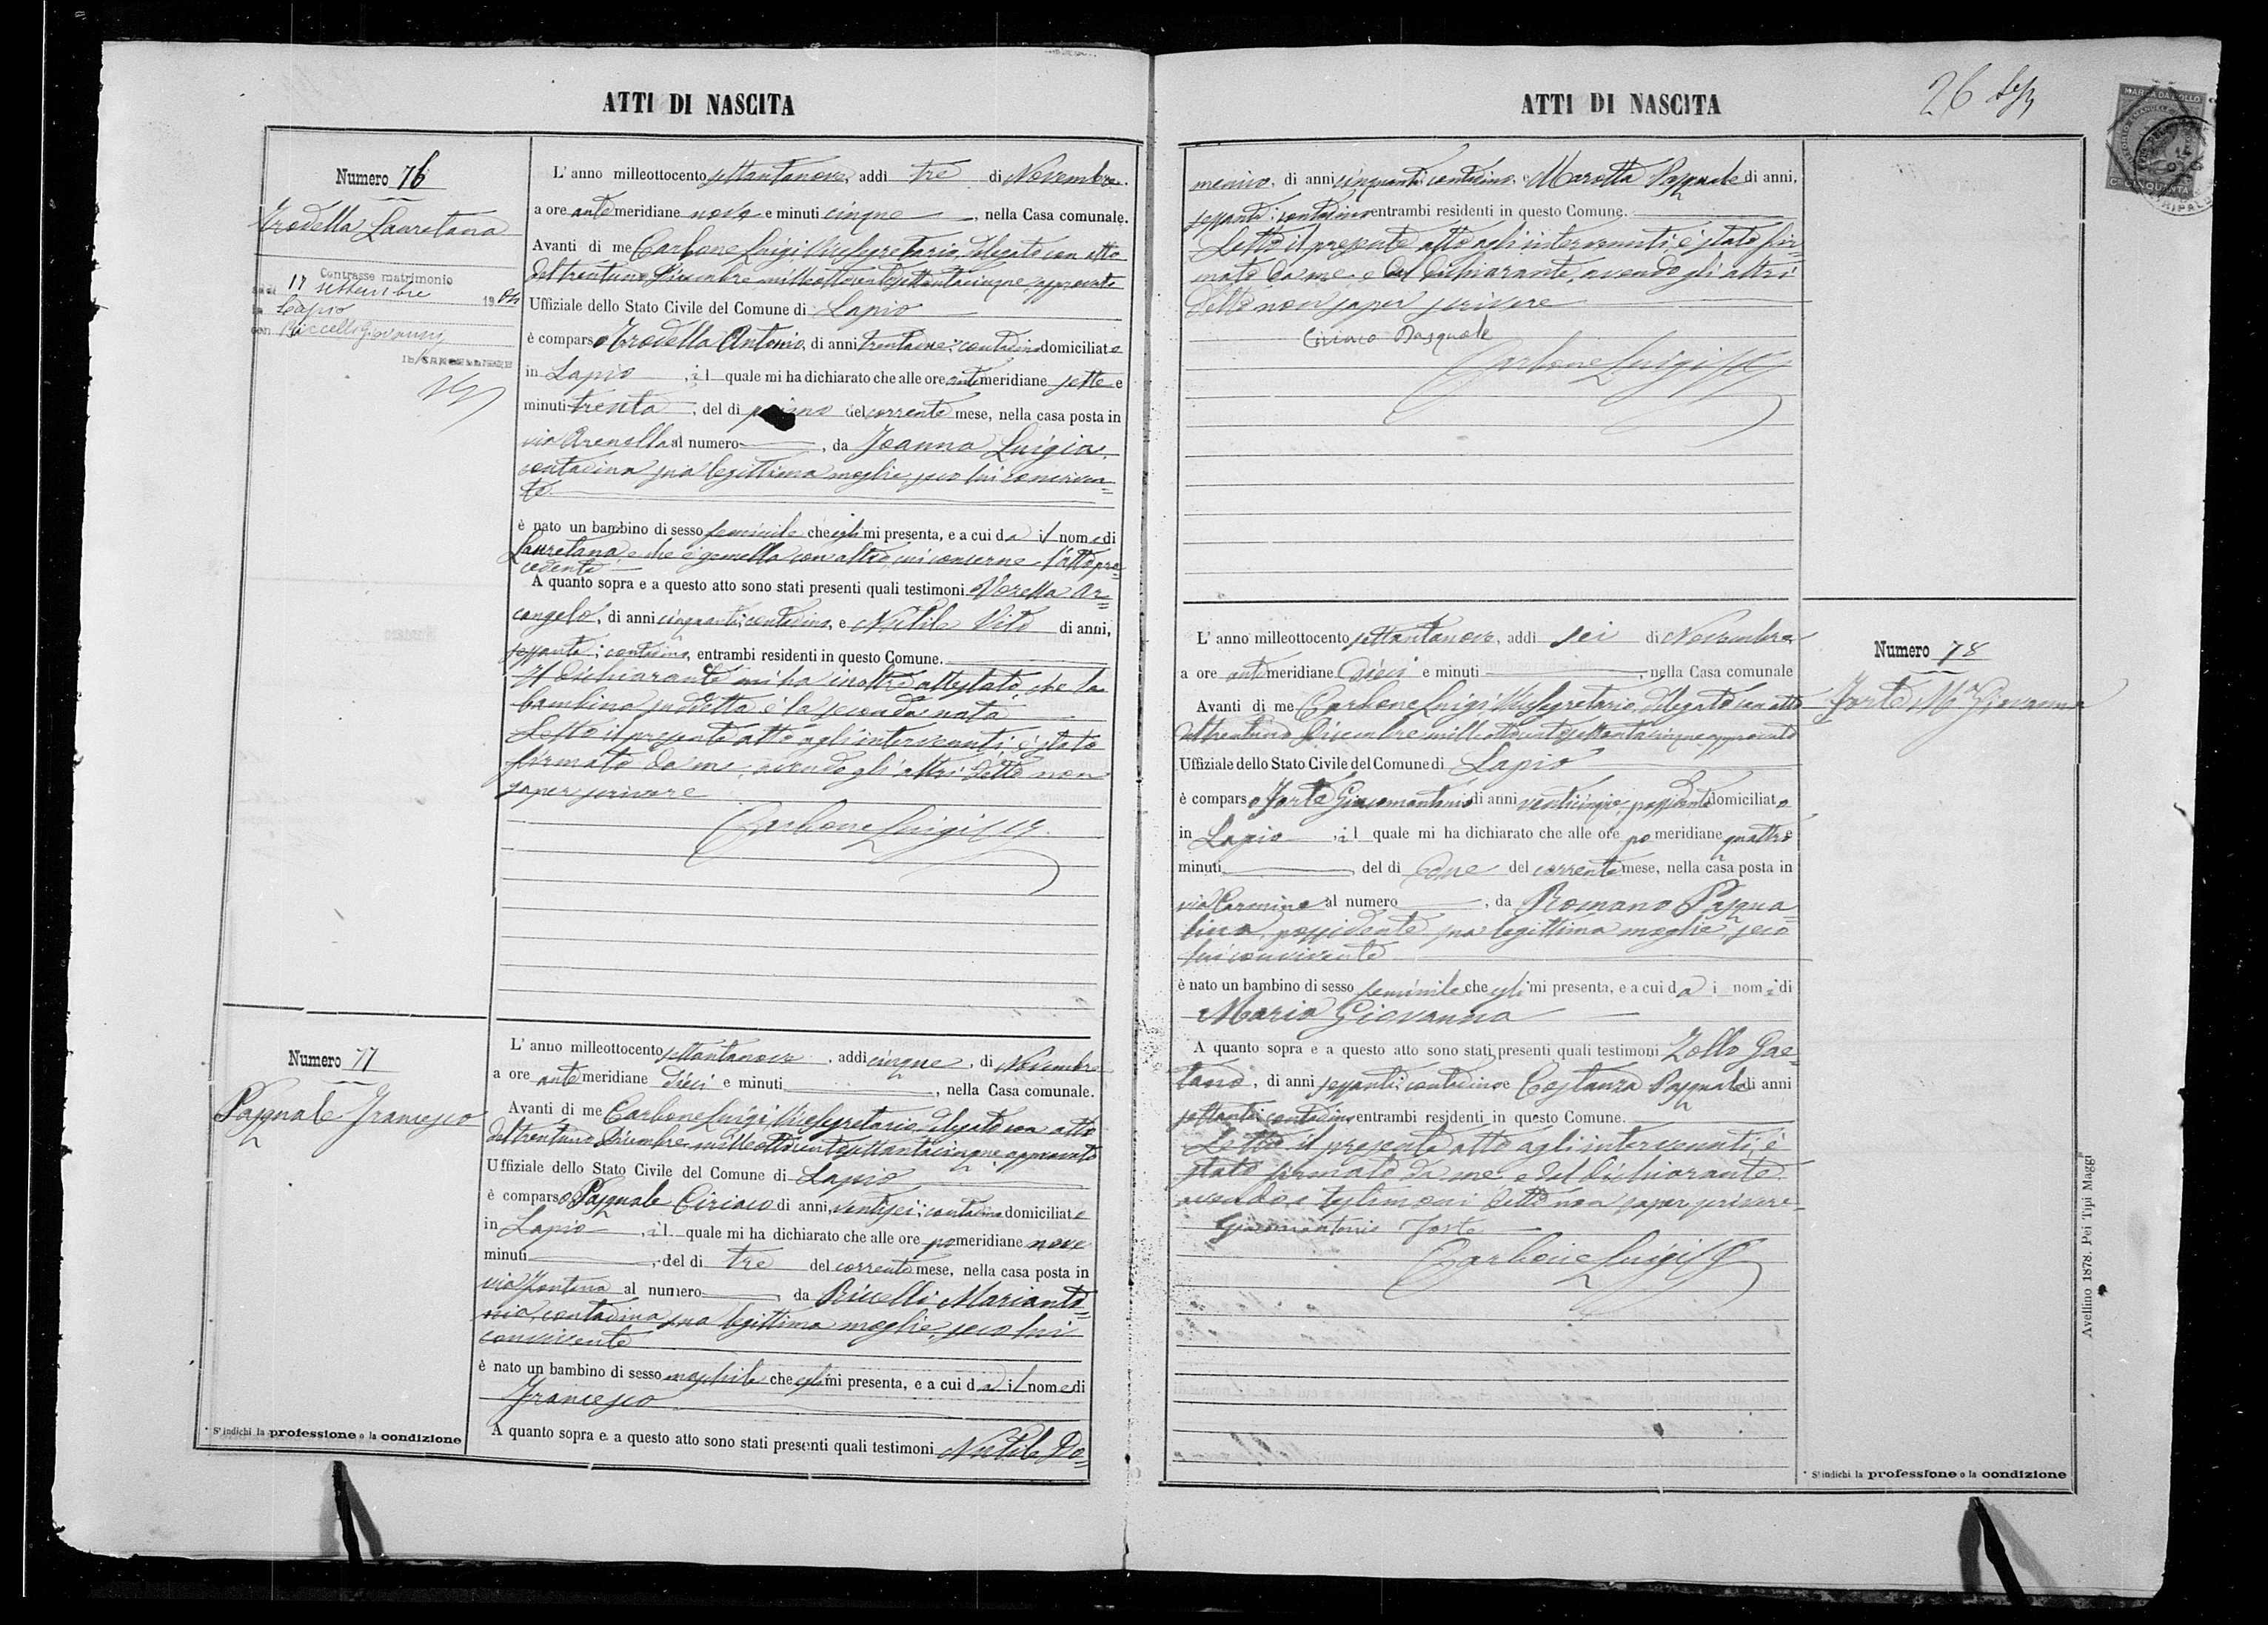 ATTI DI NASCITA
Numero 76
Trodella Lauretana
Contrasse matrimonio
17 settembre 19
Lapio
con Riccelli Giovanni
L'anno milleottocento settantanove, addì tre di Novembre
a ore antemeridiane nove e minuti cinque, nella Casa comunale.
Avanti di me Carbone Luigi Vicesegretario, delegato con atto
del trentuno Dicembre milleottocentosettantacinque, approvato
Uffiziale dello Stato Civile del Comune di Lapio
è comparso Trodella Antonio, di anni contadino domiciliato
in Lapio, il quale mi ha dichiarato che alle ore antemeridiane sette e
minuti trenta, del dì primo del corrente mese, nella casa posta in
via Arenella al numero , da Joanna Luigia,
contadina sua legittima moglie, seco lui conviven=
te.
è nato un bambino di sesso feminile che egli mi presenta, e a cui da il nome di
Lauretana e che è gemella con altro, cui concerne l'atto pre=
cedente
A quanto sopra e a questo atto sono stati presenti quali testimoni Ar=
cangelo, di anni cinquanta, contadino, e Nutile Vito di anni,
sessanta, contadino, entrambi residenti in questo Comune.
Il dichiarante mi ha inoltre attestato, che la
bambina suddetta è la seconda nata
Letto il presente atto agl'intervenuti, è stato
firmato da me, avendo gli altri detto non
saper scrivere
Carbone Luigi
Numero 77
Pasquale Francesco
L'anno milleottocento settantanove, addì cinque, di Novembre
a ore antemeridiane dieci e minuti , nella Casa comunale.
Avanti di me Carbone Luigi, Vicesegretario, delegato con atto
del trentuno Dicembre milleottocentosettantacinque, approvato
Uffiziale dello Stato Civile del Comune di Lapio
è comparso Pasquale Ciriaco di anni, ventisei, contadino domiciliato
in Lapio, il quale mi ha dichiarato che alle ore pomeridiane nove
minuti , del dì tre del corrente mese, nella casa posta in
via Fontana al numero , da Riccelli Marianto=
nia, contadina, sua legittima moglie, seco lui
convivente
è nato un bambino di sesso maschile che egli mi presenta, e a cui da il nome di
Francesco
A quanto sopra e a questo atto sono stati presenti quali testimoni Nutile Do=
* S'indichi la professione o la condizione
ATTI DI NASCITA
26
MARCA DA BOLLO
CMI CINQUANTA
menico, di anni cinquanta, contadino, e Marotta Pasquale di anni,
sessanta, contadino entrambi residenti in questo Comune.
Letto il presente atto agl'intervenuti è stato fir=
mato da me e dal dichiarante, avendo gli altri
detto non saper scrivere
Ciriaco Pasquale
Carbone Luigi
Numero 78
Forte Ma Giovanna
L'anno milleottocento settantanove, addì sei di Novembre
a ore antemeridiane dieci e minuti , nella Casa comunale
Avanti di me Carbone Luigi Vicesegretario, delegato con atto
del trentuno Dicembre milleottocentosettantacinque approvato
Uffiziale dello Stato Civile del Comune di Lapio
è comparso Forte Giacomantonio di anni venticinque, possidente domiciliato
in Lapio, il quale mi ha dichiarato che alle ore pomeridiane quattro e
minuti , del dì due del corrente mese, nella casa posta in
via Carmine al numero , da Romano Pasqua=
lina, possidente sua legittima moglie, seco
lui convivente
è nato un bambino di sesso feminile che egli mi presenta, e a cui da i nomi di
Maria Giovanna
A quanto sopra e a questo atto sono stati presenti quali testimoni Zollo Gae=
tano, di anni sessanta, contadino e Costanza Pasquale di anni
settanta, contadino entrambi residenti in questo Comune.
Letto il presente atto agl'intervenuti, è
stato firmato da me e dal dichiarante
avendo i testimoni detto non saper scrivere
Giacomantonio Forte
Carbone Luigi
* S'indichi la professione o la condizione
Avellino 1878. Pei Tipi Maggi